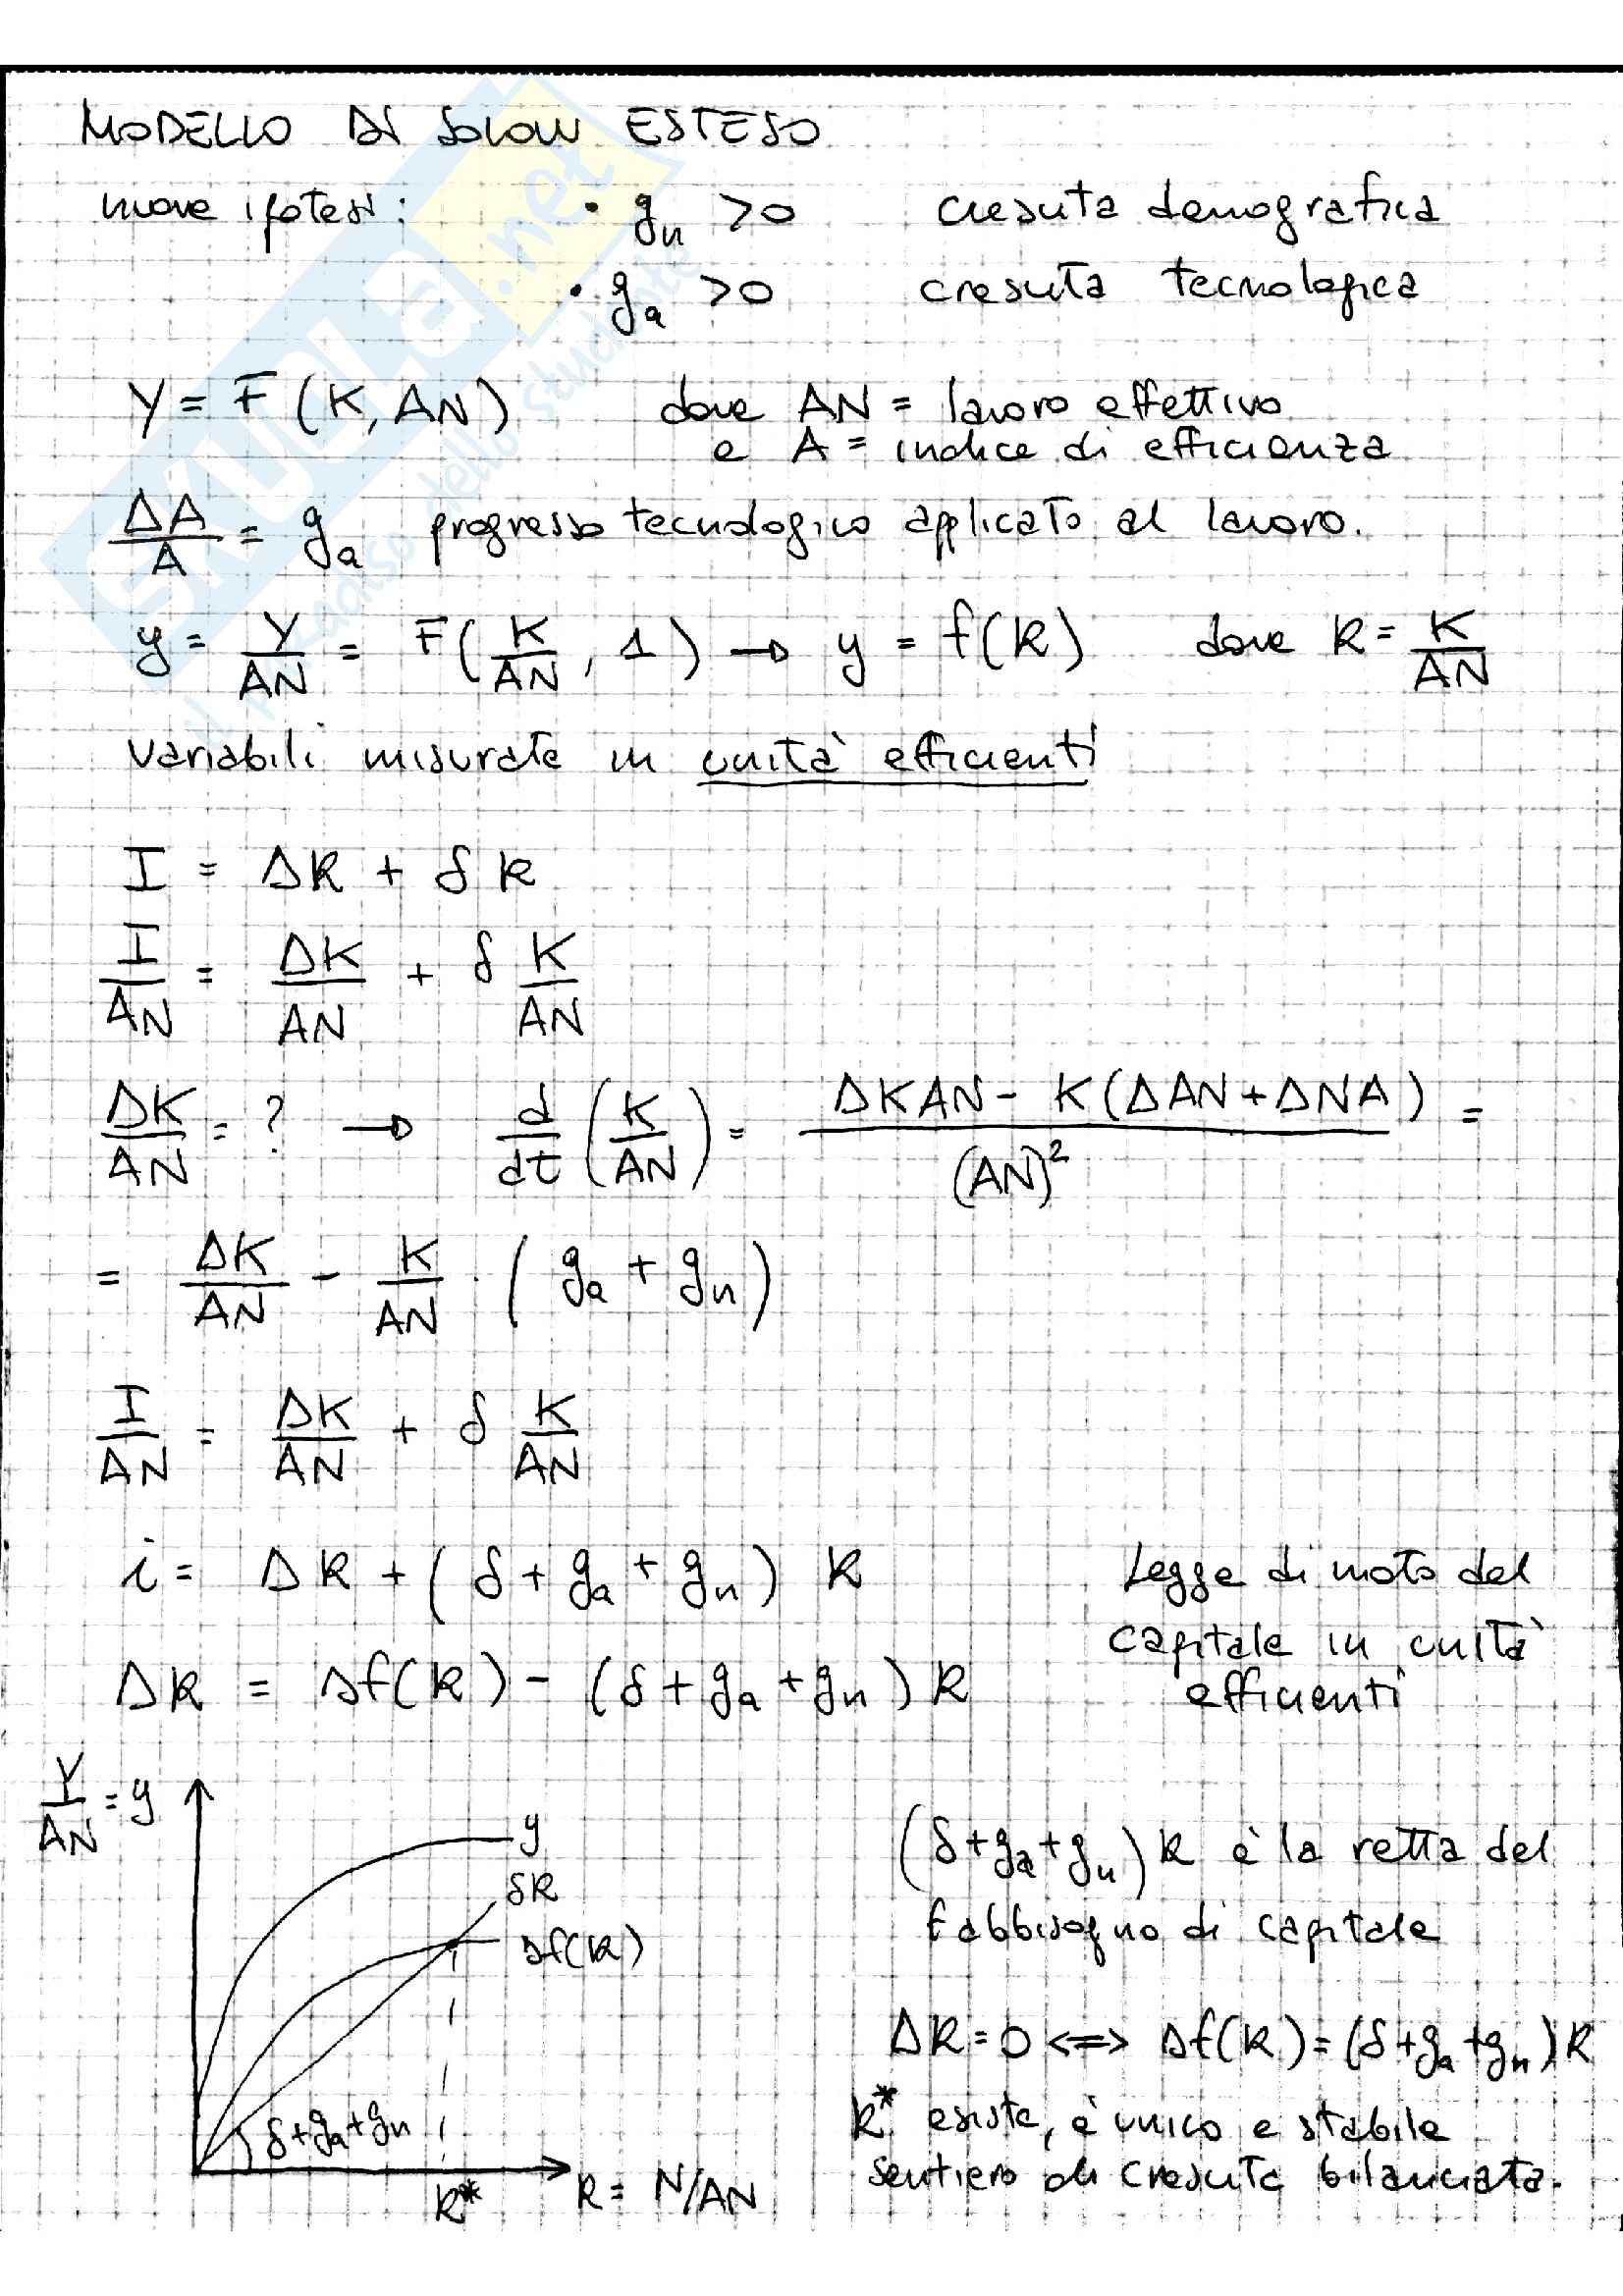 MODELLO DI SOLOW ESTESO
nuove ipotesi: • gn >0 crescita demografica
• ga >0 crescita tecnologica
Y = F(K, AN) dove AN = lavoro effettivo
e A = indice di efficienza
ΔA/A = ga progresso tecnologico applicato al lavoro.
y = Y/AN = F(K/AN, 1) → y = f(k) dove k = K/AN
Variabili misurate in unità efficienti
I = Δk + δk
I/AN = ΔK/AN + δ K/AN
ΔK/AN = ? → d/dt (K/AN) = ΔKAN - K(ΔAN+ΔNA) / (AN)² =
= ΔK/AN - K/AN · (ga + gn)
I/AN = ΔK/AN + δ K/AN
i = Δk + (δ + ga + gn) k Legge di moto del
capitale in unità
efficienti
Δk = sf(k) - (δ + ga + gn) k
Y/AN = y
y
δk
sf(k)
δ+ga+gn
k*
k = N/AN
(δ+ga+gn)k è la retta del
fabbisogno di capitale
Δk=0 <=> sf(k)=(δ+ga+gn)k
k* esiste, è unico e stabile
sentiero di crescita bilanciata.
SKUOLA.net
il paradiso dello studente